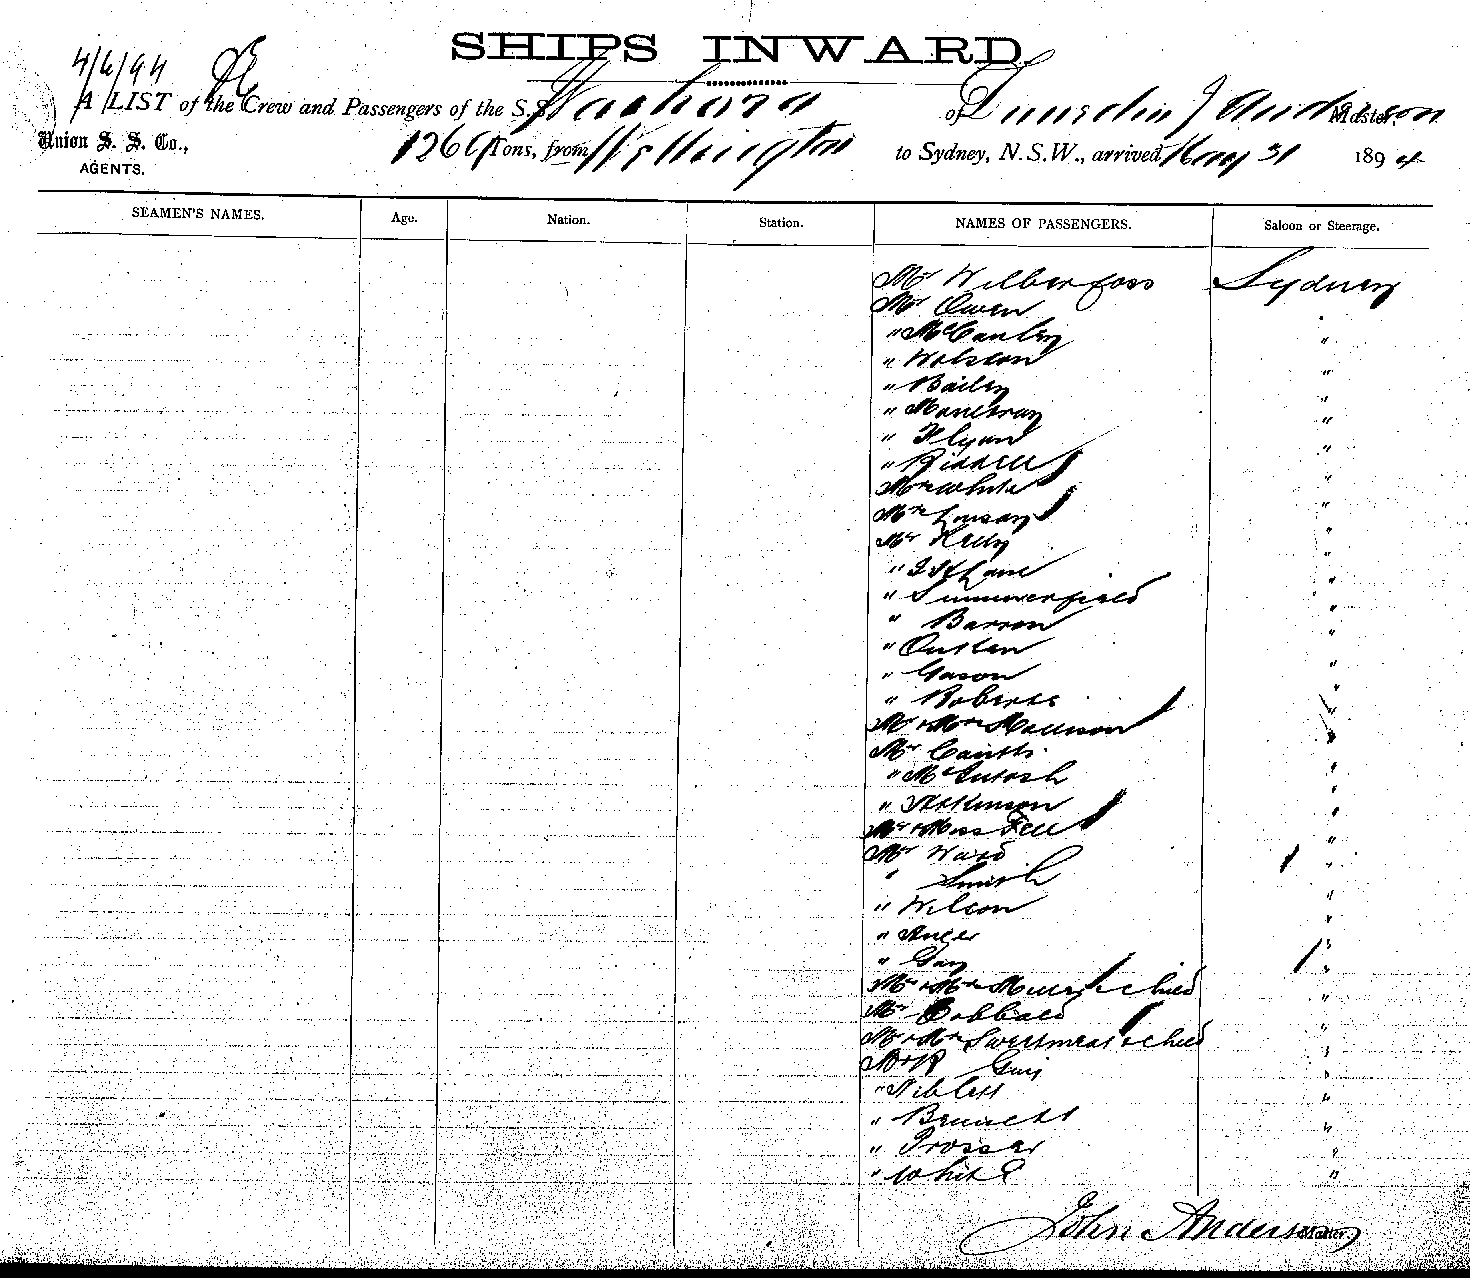 SHIPS INWARD.
4/6/94
A LIST of the Crew and Passengers of the S.S. of Dunedin J Anderson Master.
Union S. S. Co.,
AGENTS.
126 Tons, from Wellington to Sydney, N.S.W., arrived May 31 1894
SEAMEN'S NAMES. Age. Nation. Station. NAMES OF PASSENGERS. Saloon or Steerage.
Mr Wilberfoss Sydney
Mr Owen
" McCauley "
" Wolston "
" Bailey "
" "
" Flynn "
" Riddell "
Mrs White "
Mrs "
Mr Kelly "
" "
" Summerfield "
" Barron "
" "
" Gason "
" Roberts "
Mr + Mrs "
Mr "
" McIntosh "
" Atkinson "
Mr + Miss Fell "
Mr Ward "
" Smith "
" Wilson "
" "
" Gay "
Mr + Mrs + child "
Mr "
Mr + Mrs Sweetmeat + child "
Mr R "
" Niblett "
" "
" Prosser "
" White "
John Anderson Master.